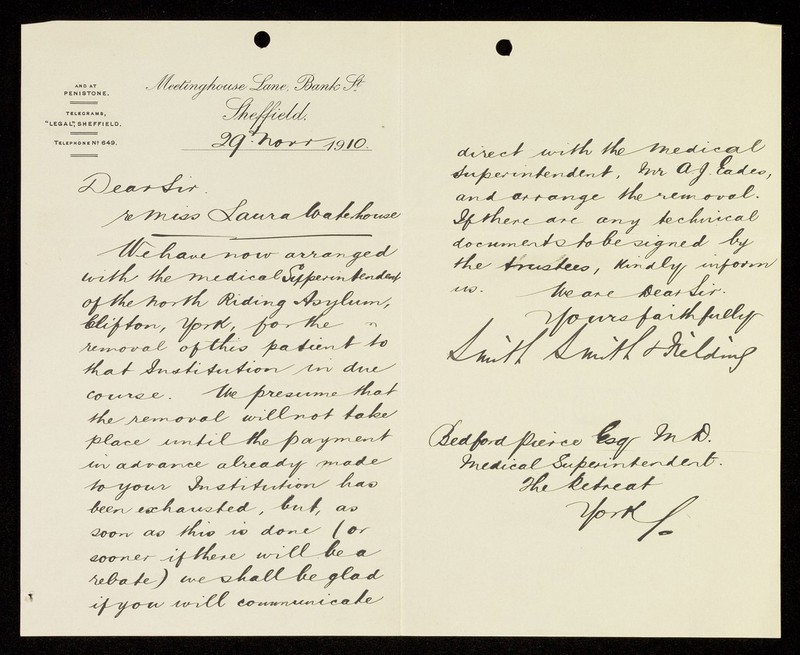 AND AT
PENISTONE.
TELEGRAMS,
"LEGAL", SHEFFIELD.
TELEPHONE Nº 649.
Meetinghouse Lane, Bank St.
Sheffield.
29th Novr 1910.
Dear Sir.
re Miss Laura Waterhouse
We have now arranged
with the medical Superintendent
of the North Riding Asylum,
Clifton, York, for the
removal of this patient to
that Institution in due
course. We presume that
the removal will not take
place until the payment
in advance already made
to your Institution has
been exhausted, but, as
soon as this is done (or
sooner if there will be a
rebate) we shall be glad
if you will communicate
direct with the medical
Superintendent, Mr A. J. Eades,
and arrange the removal.
If there are any technical
documents to be signed by
the trustees, kindly inform
us. We are Dear Sir.
Yours faithfully
Smith Smith & Fielding
Bedford Pierce Esq M.D.
Medical Superintendent.
The Retreat
York